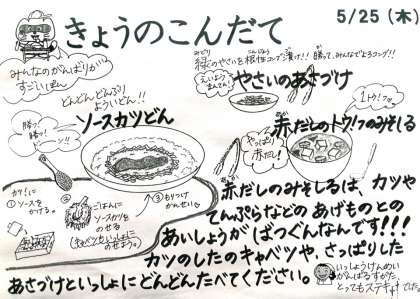 きょうのこんだて
5/25 (木)
みんなのがんばりが
すごいぽん
どんどんどんぶり
よういどん!!
緑のやさいを根性コンブ漬け!! 勝って、みんなでよろコンブ!!
みどり
こんじょう
えいよう
まんてん!
やさいのあさづけ
1トウ!フ。
勝つ!
勝つ!
ドーン!!
ソースカツどん
やっぱり
赤だし!
赤だしのトウ!フのみそしる
カツ!に
①ソースを
かける。
②ごはんに
ソースカツを
のせる
(キャベツもいっしょに
のせよう。)
③もりつけ
かんせい☆
赤だしのみそしるは、カツや
てんぷらなどの あげものとの
あいしょうが ばつぐんなんです!!!
カツのしたのキャベツや、さっぱりした
あさづけといっしょにどんどんたべてください。
いっしょうけんめい
がんばるすがた、
とってもステキです。